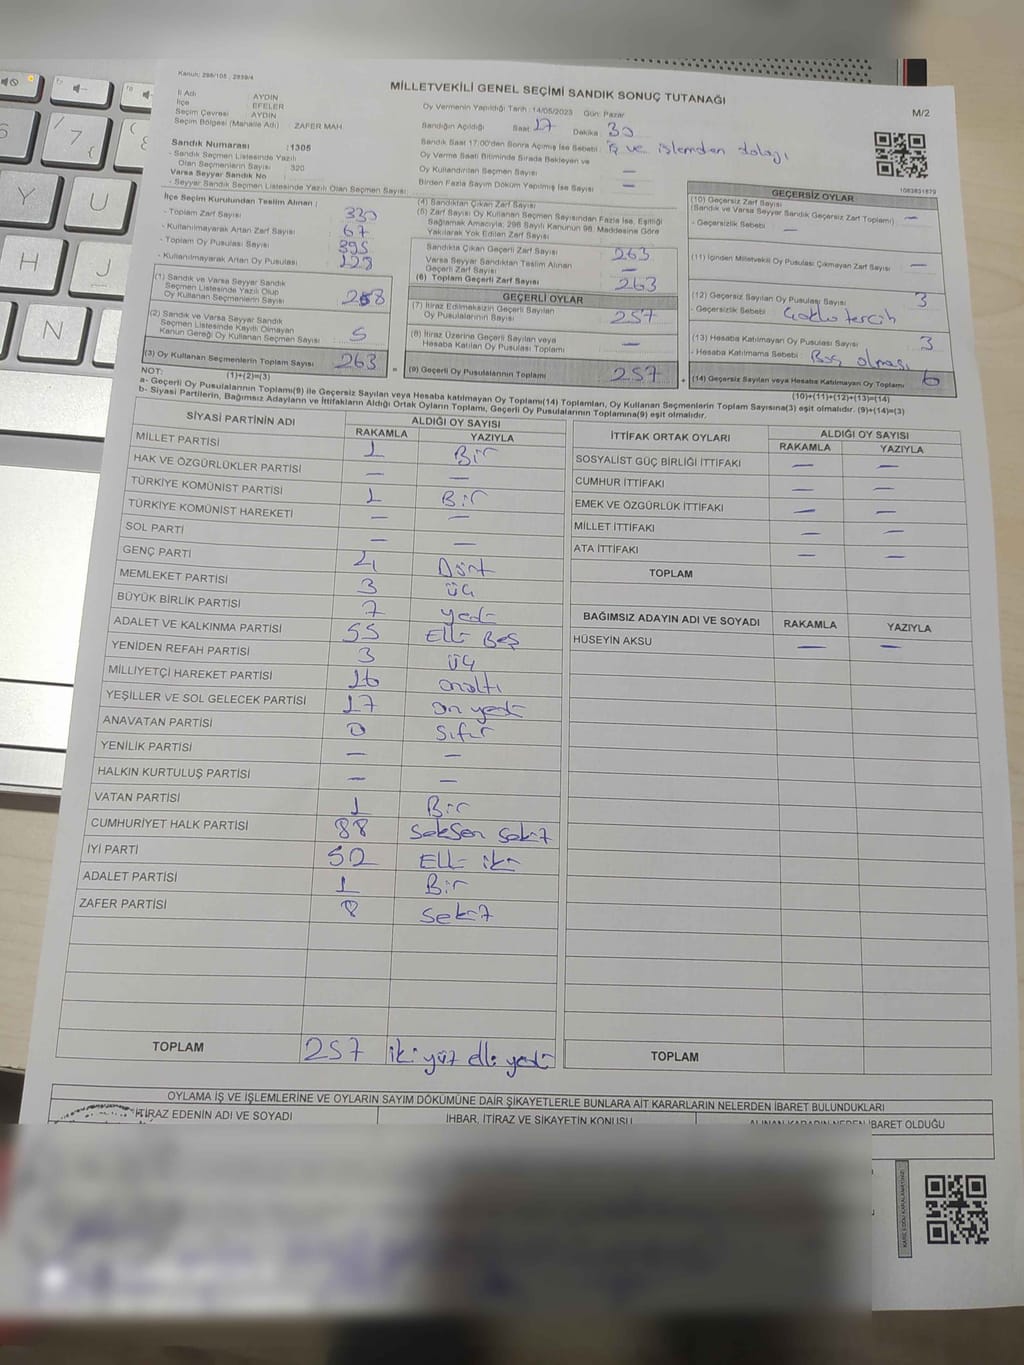 Kanun: 298/105, 2839/4
MİLLETVEKİLİ GENEL SEÇİMİ SANDIK SONUÇ TUTANAĞI
M/2
İl Adı : AYDIN
İlçe : EFELER
Seçim Çevresi : AYDIN
Seçim Bölgesi (Mahalle Adı) : ZAFER MAH.
Oy Vermenin Yapıldığı Tarih : 14/05/2023 Gün: Pazar
Sandığın Açıldığı Saat 17 Dakika : 30
Sandık Saat 17.00'den Sonra Açılmış İse Sebebi : iş ve işlemden dolayı
Oy Verme Saati Bitiminde Sırada Bekleyen ve
Oy Kullandırılan Seçmen Sayısı : —
Birden Fazla Sayım Döküm Yapılmış İse Sayısı : —
1083831879
Sandık Numarası : 1305
- Sandık Seçmen Listesinde Yazılı
Olan Seçmenlerin Sayısı : 320
Varsa Seyyar Sandık No :
- Seyyar Sandık Seçmen Listesinde Yazılı Olan Seçmen Sayısı :
İlçe Seçim Kurulundan Teslim Alınan ;
- Toplam Zarf Sayısı : 330
- Kullanılmayarak Artan Zarf Sayısı : 67
- Toplam Oy Pusulası Sayısı : 395
- Kullanılmayarak Artan Oy Pusulası :
(1) Sandık ve Varsa Seyyar Sandık
Seçmen Listesinde Yazılı Olup
Oy Kullanan Seçmenlerin Sayısı 258
(2) Sandık ve Varsa Seyyar Sandık
Seçmen Listesinde Kayıtlı Olmayan
Kanun Gereği Oy Kullanan Seçmen Sayısı 5
(3) Oy Kullanan Seçmenlerin Toplam Sayısı 263
(1)+(2)=(3)
(4) Sandıktan Çıkan Zarf Sayısı
(5) Zarf Sayısı Oy Kullanan Seçmen Sayısından Fazla İse, Eşitliği
Sağlamak Amacıyla; 298 Sayılı Kanunun 98. Maddesine Göre
Yakılarak Yok Edilen Zarf Sayısı
Sandıkta Çıkan Geçerli Zarf Sayısı 263
Varsa Seyyar Sandıktan Teslim Alınan
Geçerli Zarf Sayısı —
(6) Toplam Geçerli Zarf Sayısı 263
GEÇERLİ OYLAR
(7) İtiraz Edilmeksizin Geçerli Sayılan
Oy Pusulalarının Sayısı 257
(8) İtiraz Üzerine Geçerli Sayılan veya
Hesaba Katılan Oy Pusulası Toplamı —
= (9) Geçerli Oy Pusulalarının Toplamı 257 +
GEÇERSİZ OYLAR
(10) Geçersiz Zarf Sayısı
(Sandık ve Varsa Seyyar Sandık Geçersiz Zarf Toplamı) —
- Geçersizlik Sebebi : —
(11) İçinden Milletvekili Oy Pusulası Çıkmayan Zarf Sayısı —
(12) Geçersiz Sayılan Oy Pusulası Sayısı 3
- Geçersizlik Sebebi : Çoklu tercih
(13) Hesaba Katılmayan Oy Pusulası Sayısı 3
- Hesaba Katılmama Sebebi : Boş olması
(14) Geçersiz Sayılan veya Hesaba Katılmayan Oy Toplamı 6
(10)+(11)+(12)+(13)=(14)
NOT:
a- Geçerli Oy Pusulalarının Toplamı(9) ile Geçersiz Sayılan veya Hesaba katılmayan Oy Toplamı(14) Toplamları, Oy Kullanan Seçmenlerin Toplam Sayısına(3) eşit olmalıdır. (9)+(14)=(3)
b- Siyasi Partilerin, Bağımsız Adayların ve İttifakların Aldığı Ortak Oyların Toplamı, Geçerli Oy Pusulalarının Toplamına(9) eşit olmalıdır.
SİYASİ PARTİNİN ADI ALDIĞI OY SAYISI
RAKAMLA YAZIYLA
MİLLET PARTİSİ 1 Bir
HAK VE ÖZGÜRLÜKLER PARTİSİ — —
TÜRKİYE KOMÜNİST PARTİSİ 1 Bir
TÜRKİYE KOMÜNİST HAREKETİ — —
SOL PARTİ — —
GENÇ PARTİ 4 Dört
MEMLEKET PARTİSİ 3 üç
BÜYÜK BİRLİK PARTİSİ 7 yedi
ADALET VE KALKINMA PARTİSİ 55 Elli Beş
YENİDEN REFAH PARTİSİ 3 üç
MİLLİYETÇİ HAREKET PARTİSİ 16 onaltı
YEŞİLLER VE SOL GELECEK PARTİSİ 17 on yedi
ANAVATAN PARTİSİ 0 Sıfır
YENİLİK PARTİSİ — —
HALKIN KURTULUŞ PARTİSİ — —
VATAN PARTİSİ 1 Bir
CUMHURİYET HALK PARTİSİ 88 Seksen Sekiz
İYİ PARTİ 52 Elli iki
ADALET PARTİSİ 1 Bir
ZAFER PARTİSİ 8 Sekiz
TOPLAM 257 iki yüz elli yedi
İTTİFAK ORTAK OYLARI ALDIĞI OY SAYISI
RAKAMLA YAZIYLA
SOSYALİST GÜÇ BİRLİĞİ İTTİFAKI — —
CUMHUR İTTİFAKI — —
EMEK VE ÖZGÜRLÜK İTTİFAKI — —
MİLLET İTTİFAKI — —
ATA İTTİFAKI — —
TOPLAM
BAĞIMSIZ ADAYIN ADI VE SOYADI RAKAMLA YAZIYLA
HÜSEYİN AKSU — —
TOPLAM
OYLAMA İŞ VE İŞLEMLERİNE VE OYLARIN SAYIM DÖKÜMÜNE DAİR ŞİKAYETLERLE BUNLARA AİT KARARLARIN NELERDEN İBARET BULUNDUKLARI
İTİRAZ EDENİN ADI VE SOYADI
İHBAR, İTİRAZ VE ŞİKAYETİN KONUSU
ALINAN KARARIN NEDEN İBARET OLDUĞU